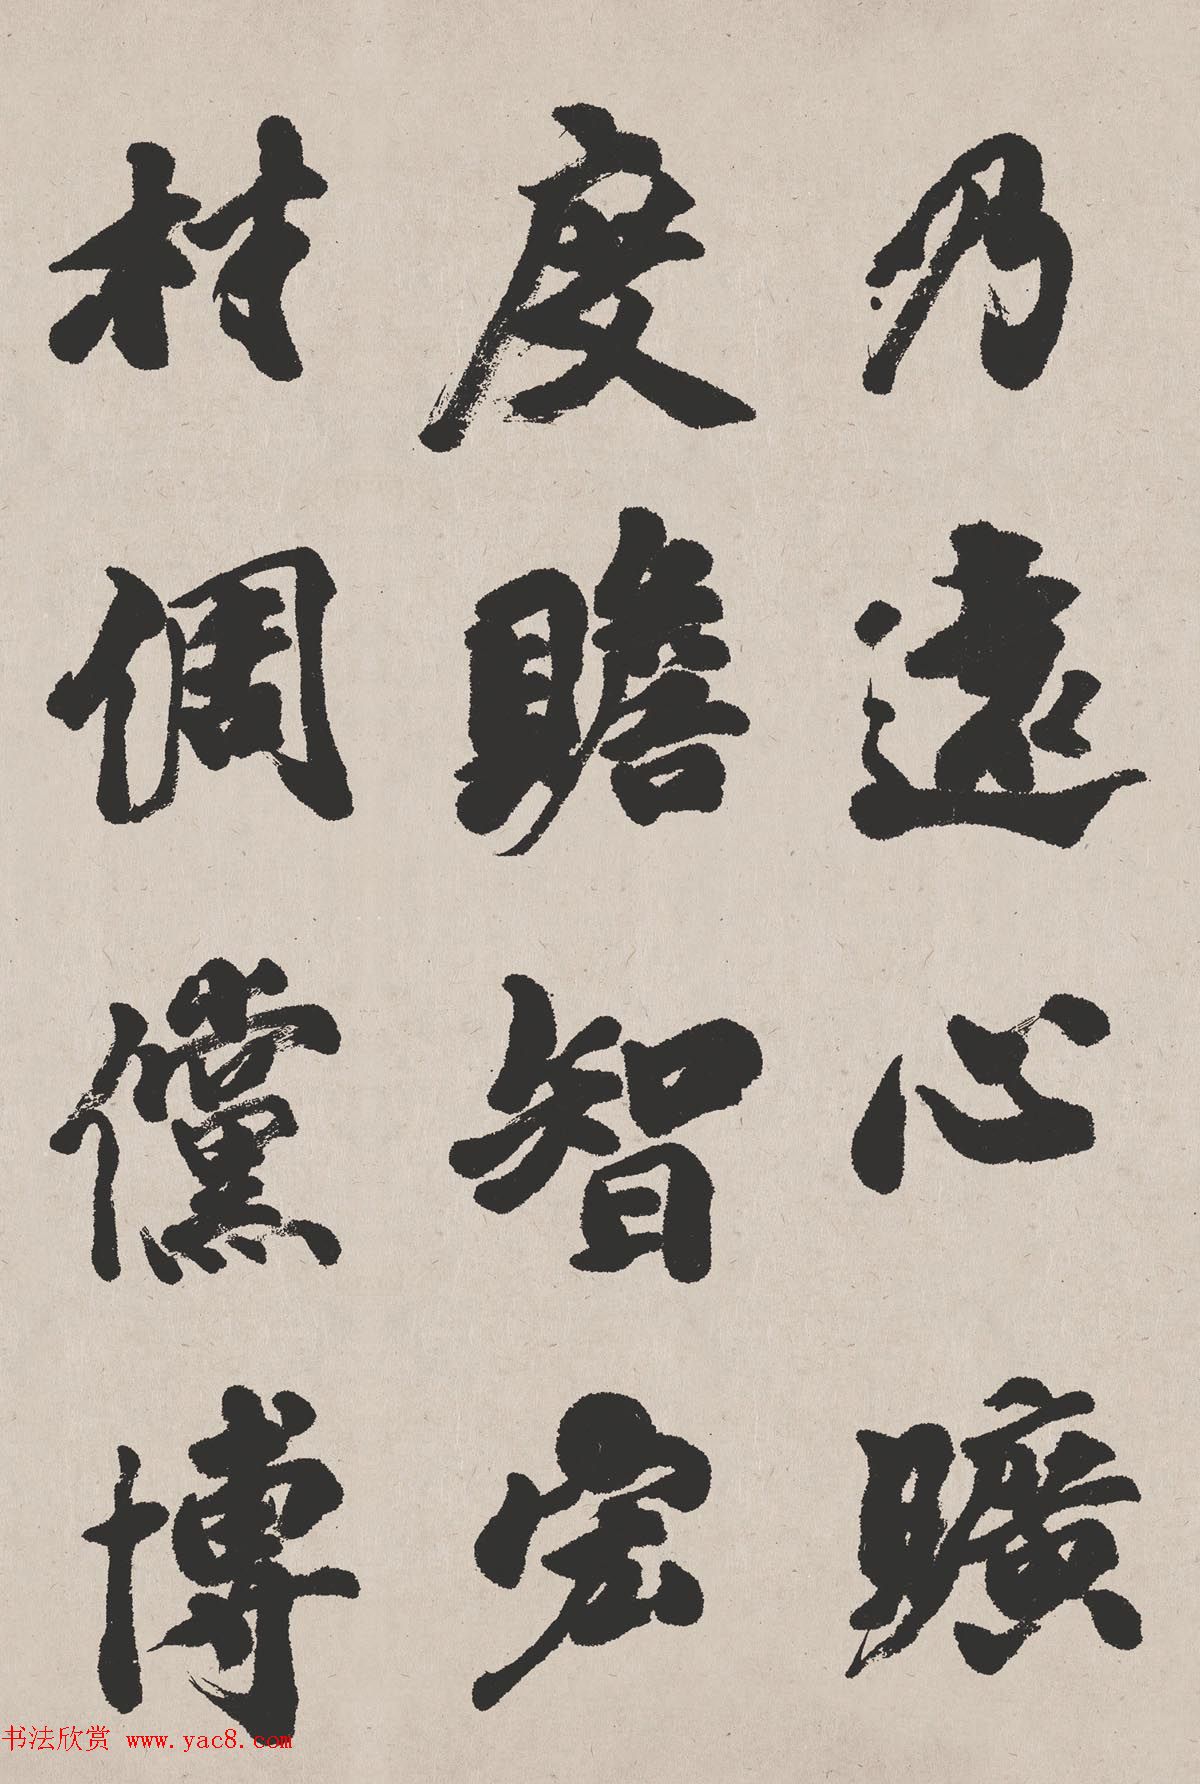 乃遠心曠
度贍智宏
材倜儻博
书法欣赏 www.yac8.com